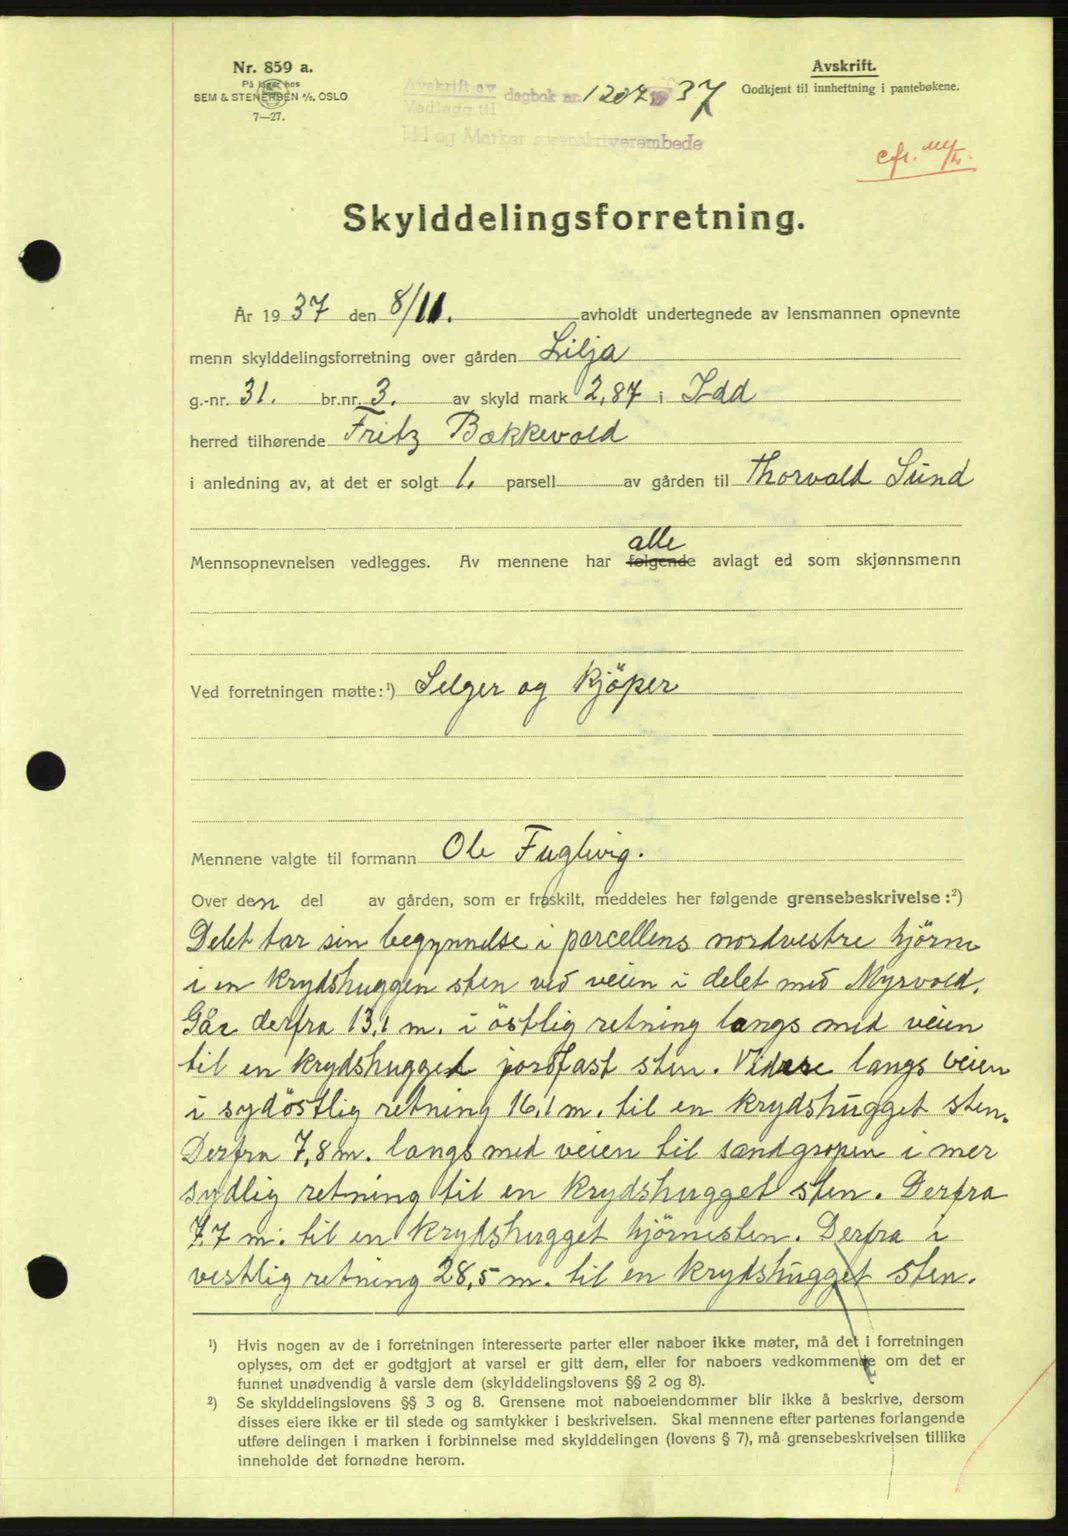 Nr. 859 a.
På lager hos
SEM & STENERSEN A/S, OSLO
7—27.
Avskrift av dagbok nr. 1207 1937
Vedlagt til
Idd og Marker sorenskriverembede
Avskrift.
Godkjent til innheftning i pantebøkene.
cfr.
Skylddelingsforretning.
År 1937 den 8/11. avholdt undertegnede av lensmannen opnevnte
menn skylddelingsforretning over gården Lilja
g.-nr. 31. br.nr. 3. av skyld mark 2,87 i Idd
herred tilhørende Fritz Bækkevold
i anledning av, at det er solgt 1. parsell av gården til Thorvald Lund
alle
Mennsopnevnelsen vedlegges. Av mennene har følgende avlagt ed som skjønnsmenn
Ved forretningen møtte:¹) Selger og Kjöper
Mennene valgte til formann Ole Fuglevig.
Over den del av gården, som er fraskilt, meddeles her følgende grensebeskrivelse:²)
Delet tar sin begynnelse i parcellens nordvestre hjörne
i en Krydshuggen sten ved veien i delet med Myrvold.
Går derfra 13,1 m. i östlig retning langs med veien
til en krydshugget jordfast sten. Videre langs veien
i sydöstlig retning 16,1 m. til en Krydshugget sten.
Derfra 7,8 m. langs med veien til sandgropen i mer
sydlig retning til en Krydshugget sten. Derfra
7,7 m. til en Krydshugget hjörnesten. Derfra i
vestlig retning 28,5 m. til en Krydshugget sten.
¹) Hvis nogen av de i forretningen interesserte parter eller naboer ikke møter, må det i forretningen
oplyses, om det er godtgjort at varsel er gitt dem, eller for naboers vedkommende om det er
funnet unødvendig å varsle dem (skylddelingslovens §§ 2 og 8).
²) Se skylddelingslovens §§ 3 og 8. Grensene mot naboeiendommer blir ikke å beskrive, dersom
disses eiere ikke er til stede og samtykker i beskrivelsen. Skal mennene efter partenes forlangende
utføre delingen i marken i forbinnelse med skylddelingen (lovens § 7), må grensebeskrivelsen tillike
inneholde det fornødne herom.